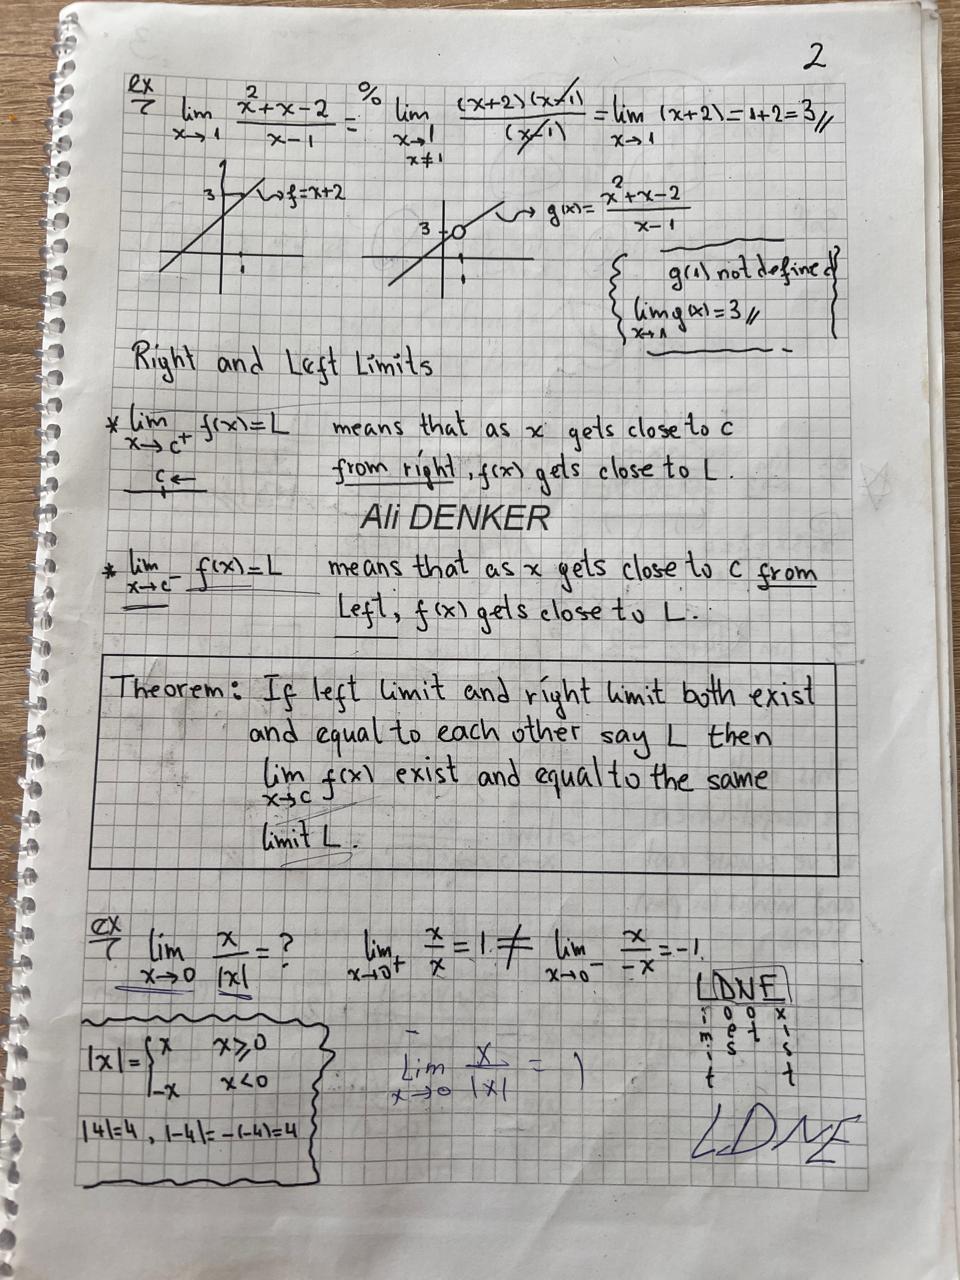 2
ex/ lim x→1 x²+x-2 / x-1 = 0/0 lim x→1 x≠1 (x+2)(x-1) / (x-1) = lim x→1 (x+2) = 1+2=3//
3 f=x+2
3 g(x)= x²+x-2 / x-1
1 1
g(1) not defined
lim x→1 g(x)=3//
Right and Left Limits
* lim x→c⁺ f(x)=L means that as x gets close to c
c← from right, f(x) gets close to L.
Ali DENKER
* lim x→c⁻ f(x)=L means that as x gets close to c from
Left, f(x) gets close to L.
Theorem: If left limit and right limit both exist
and equal to each other say L then
lim x→c f(x) exist and equal to the same
limit L.
ex/ lim x→0 x/|x| = ? lim x→0⁺ x/x = 1 ≠ lim x→0⁻ x/-x = -1
LDNE
Limit Does Not Exist
|x|= { x x≥0
-x x<0
lim x→0 x/|x| = 1
|4|=4, |-4|=-(-4)=4
LDNE